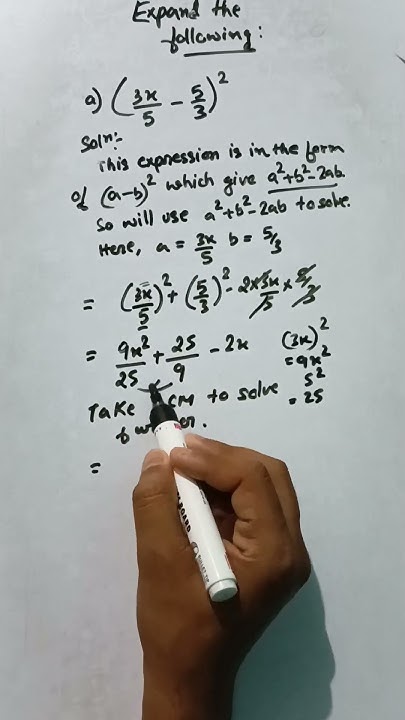 Expand the
following:
a) (3x/5 - 5/3)²
Solⁿ:-
This expression is in the form
of (a-b)² which give a²+b²-2ab.
So will use a²+b²-2ab to solve.
Here, a = 3x/5 b = 5/3
= (3x/5)² + (5/3)² - 2×3x/5 × 5/3
= 9x²/25 + 25/9 - 2x
(3x)²
= 9x²
5²
= 25
Take to solve
=